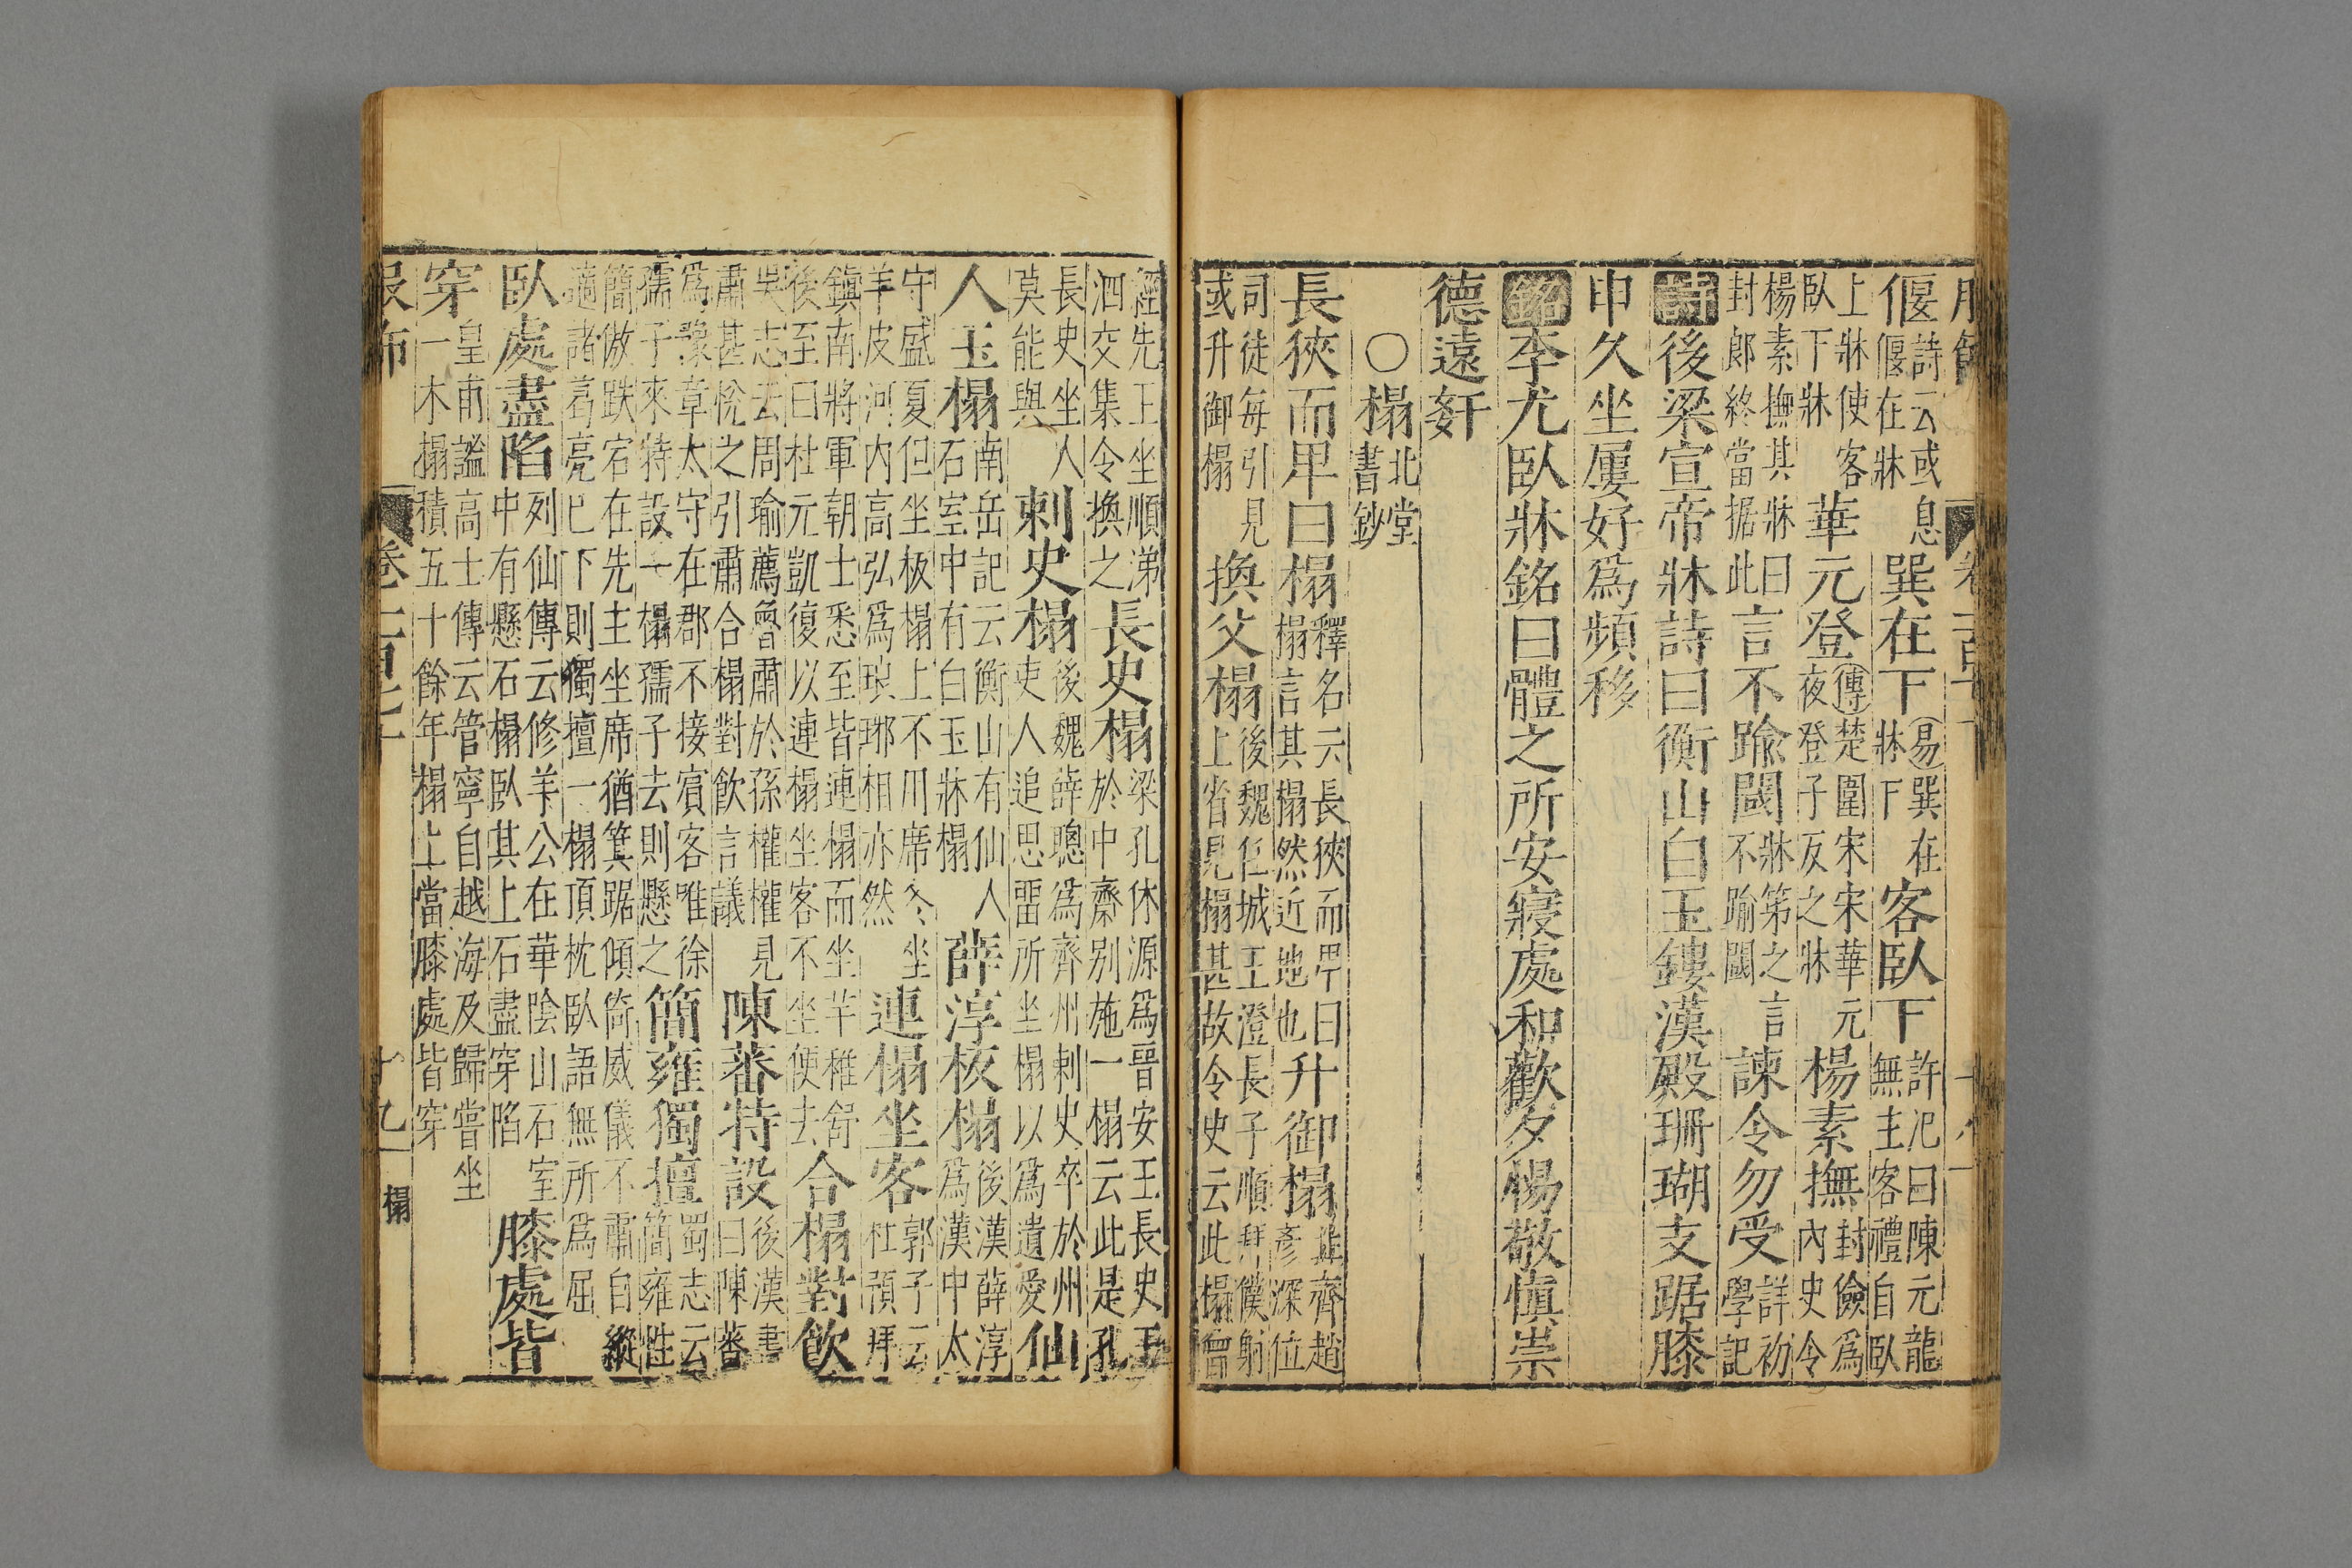 服飾
卷一百十
十八
偃詩云或息
偃偃在牀
巽在下易巽在
牀下
客臥下許汜曰陳元龍
無主客禮自臥
上牀使客
臥下牀
華元登傳楚圍宋宋華元
夜登子反之牀
楊素撫封儉爲
內史令
楊素撫其牀曰
封郞終當据此
言不踰閾牀笫之言
不踰閾
諫令勿受詳初
學記
詩後梁宣帝牀詩曰衡山白玉鏤漢殿珊瑚支踞膝
申久坐屢好爲頻移
銘李尤臥牀銘曰體之所安寢處和歡夕惕敬慎崇
德遠奸
〇榻北堂
書鈔
長狹而卑曰榻釋名云長狹而卑曰
榻言其榻然近地也
升御榻北齊趙
彥深位
司徒每引見
或升御榻
換父榻後魏任城王澄長子順拜僕射
上省見榻甚故令史云此榻曾
經先王坐順涕
泗交集令換之
長史榻梁孔休源爲晉安王長史王
於中齋别施一榻云此是孔
長史坐人
莫能與
刺史榻後魏薛聰爲齊州刺史卒於州
吏人追思畱所坐榻以爲遺愛
仙
人玉榻南岳記云衡山有仙人
石室中有白玉牀榻
薛淳板榻後漢薛淳
爲漢中太
守盛夏但坐板榻上不用席冬坐
羊皮河內高弘爲琅琊相亦然
連榻坐客郭子云
杜預拜
鎮南將軍朝士悉至皆連榻而坐羊稚舒
後至曰杜元凱復以連榻坐客不坐便去
合榻對飲
吳志云周瑜薦魯肅於孫權權見
肅甚悅之引肅合榻對飲言議
陳蕃特設後漢書
曰陳蕃
爲豫章太守在郡不接賓客唯徐
孺子來特設一榻孺子去則懸之
簡雍獨擅蜀志云
簡雍性
簡傲跌宕在先主坐席猶箕踞傾倚威儀不肅自縱
適諸葛亮已下則獨擅一榻頂枕臥語無所爲屈
臥處盡陷列仙傳云修羊公在華陰山石室
中有懸石榻臥其上石盡穿陷
膝處皆
穿皇甫謐高士傳云管寧自越海及歸嘗坐
一木榻積五十餘年榻上當膝處皆穿
服飾
卷一百七十
十九
榻